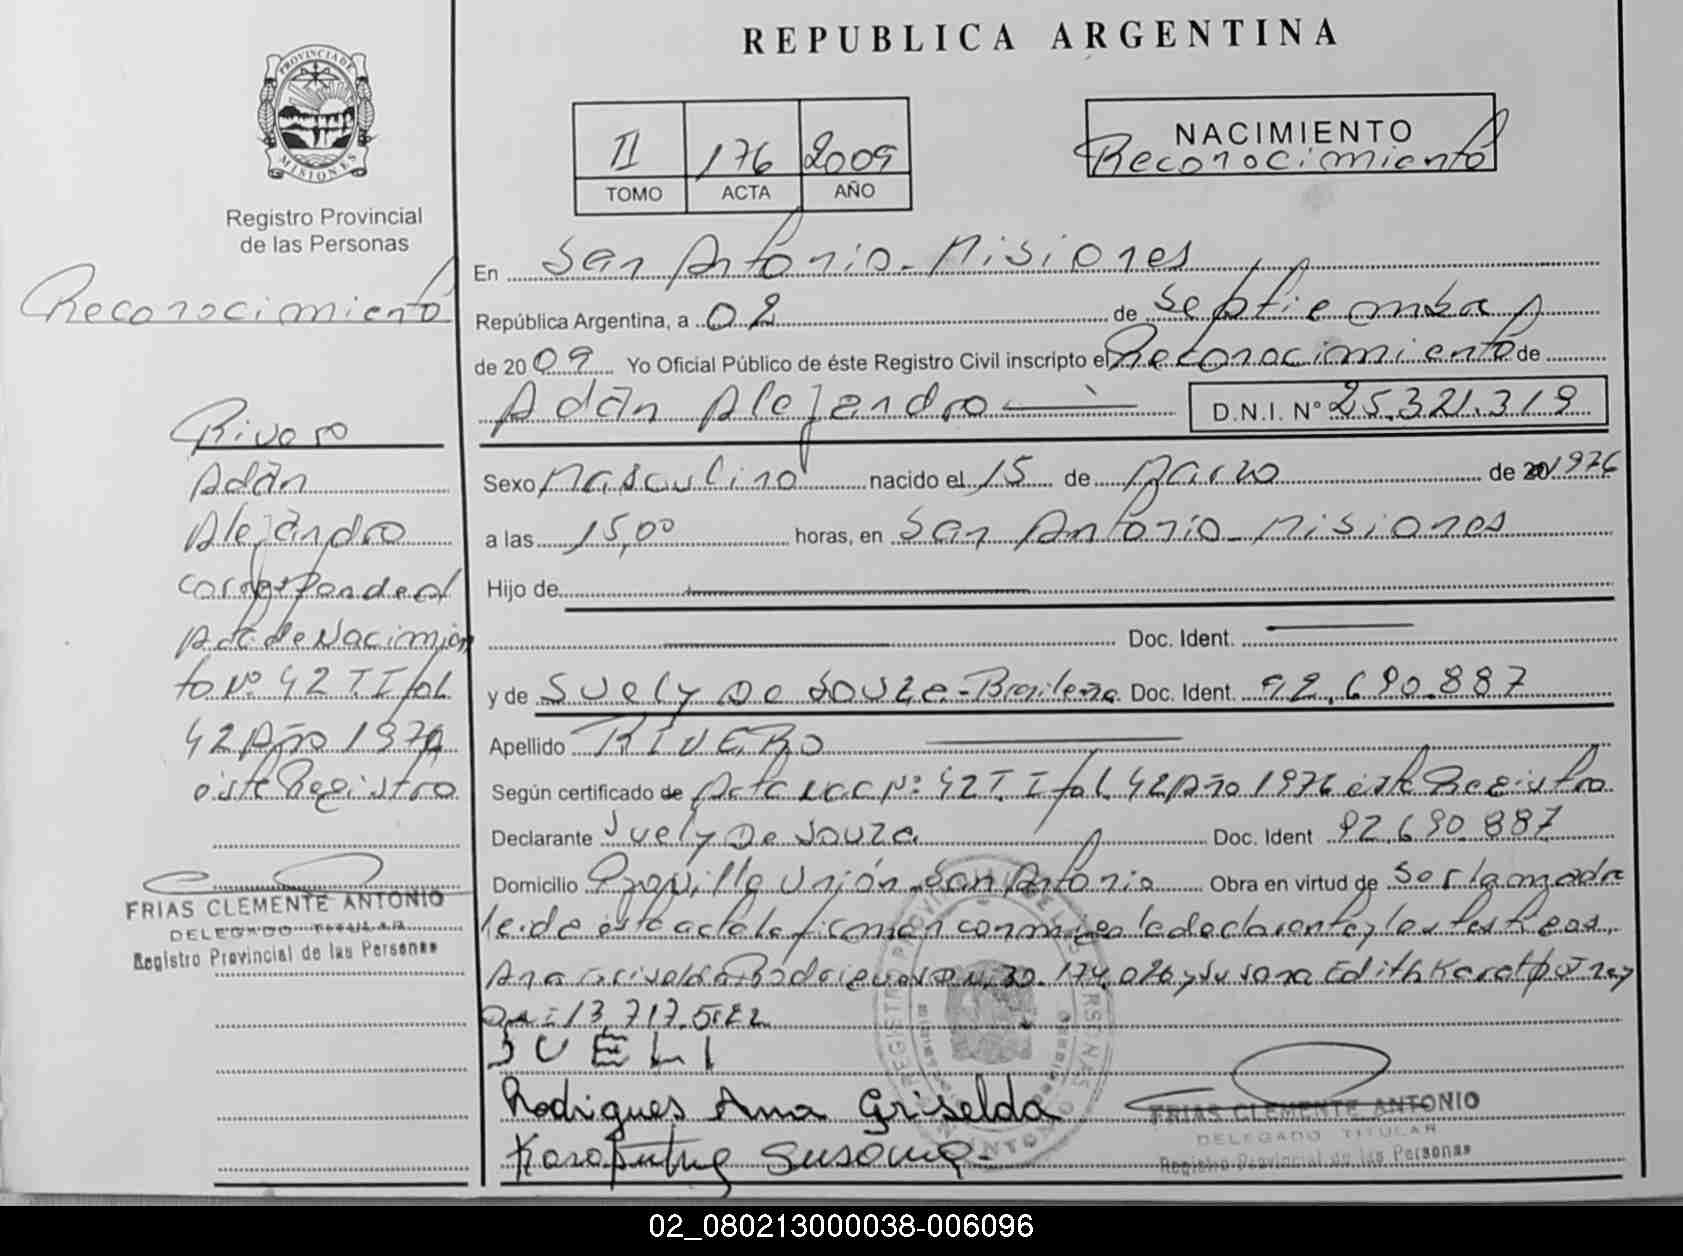 REPUBLICA ARGENTINA
PROVINCIA DE
MISIONES
Registro Provincial
de las Personas
II 176 2009
TOMO ACTA AÑO
NACIMIENTO
Reconocimiento
Reconocimiento
Rivero
Adán
Alejandro
corresponde al
Acta de Nacimien
to Nº 42 T I fol
42 Año 1976
éste Registro
FRIAS CLEMENTE ANTONIO
DELEGADO TITULAR
Registro Provincial de las Personas
En San Antonio - Misiones
República Argentina, a 02 de Septiembre
de 2009 Yo Oficial Público de éste Registro Civil inscripto el Reconocimiento de
Adán Alejandro D.N.I. Nº 25.321.319
Sexo Masculino nacido el 15 de Marzo de 20 1976
a las 15,00 horas, en San Antonio - Misiones
Hijo de
Doc. Ident.
y de Suely De Souza - Brasileña Doc. Ident. 92.690.887
Apellido RIVERO
Según certificado de Acta Nac Nº 42 T. I fol. 42 Año 1976 éste Registro
Declarante Suely De Souza Doc. Ident 92.690.887
Domicilio Villa Unión - San Antonio Obra en virtud de Ser la madre
leida éste acta la firman conmigo la declarante y los testigos,
Ana Griselda Rodrigues 30.174.026 y Susana Edith
13.717.522
SUELI
Rodrigues Ana Griselda
Susana
FRIAS CLEMENTE ANTONIO
DELEGADO TITULAR
Registro Provincial de las Personas
02_080213000038-006096